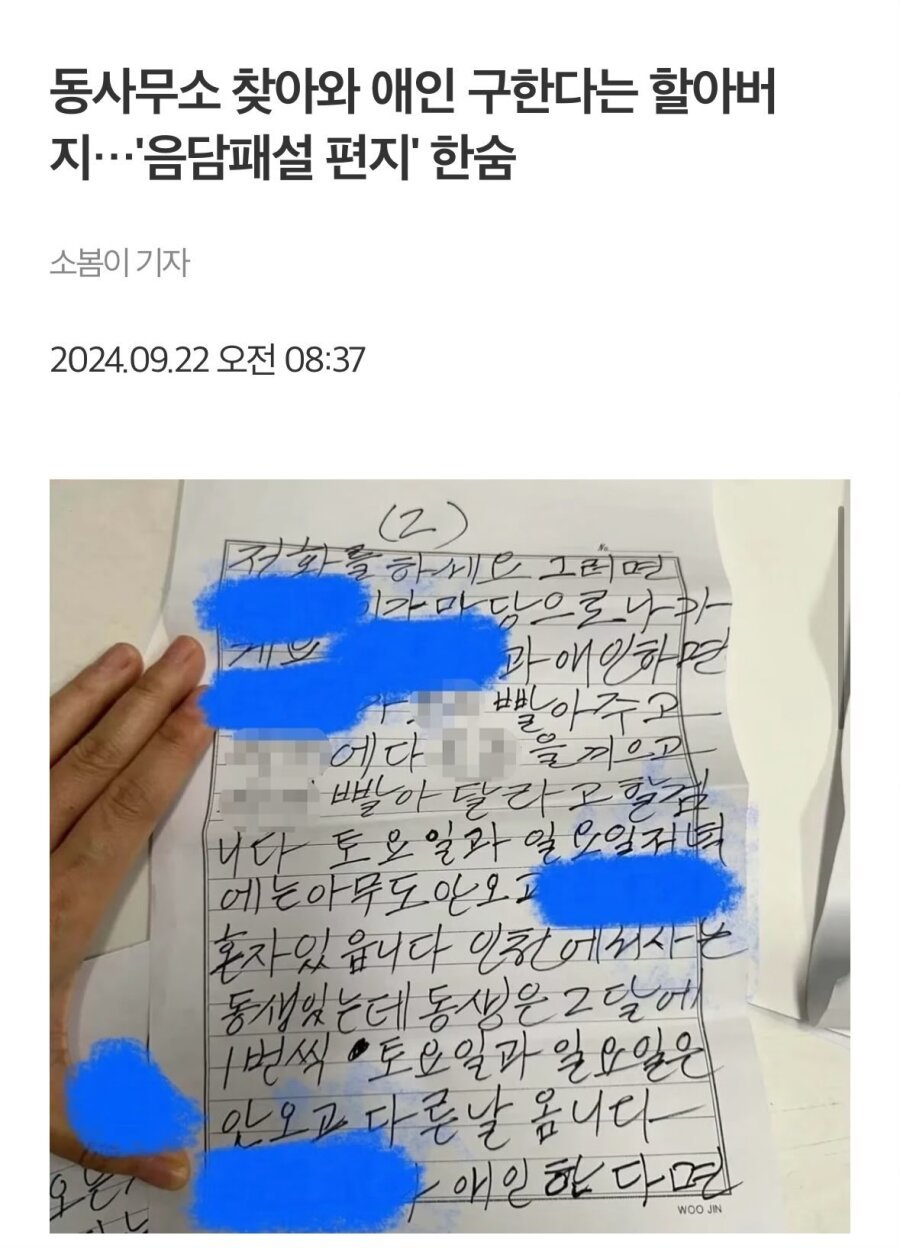 동사무소 찾아와 애인 구한다는 할아버
지…'음담패설 편지' 한숨
소봄이 기자
2024.09.22 오전 08:37
(2)
No.
전화를 하세요 그러면
가 마당으로 나가
과 애인하면
빨아주고
에다 을 끼우고
빨아 달라고 할겁
니다 토요일과 일요일저녁
에는 아무도 안오고
혼자있읍니다 인천에서사는
동생있는데 동생은 2달에
1번씩 토요일과 일요일은
안오고 다른날 옵니다
애인한다면
WOO JIN